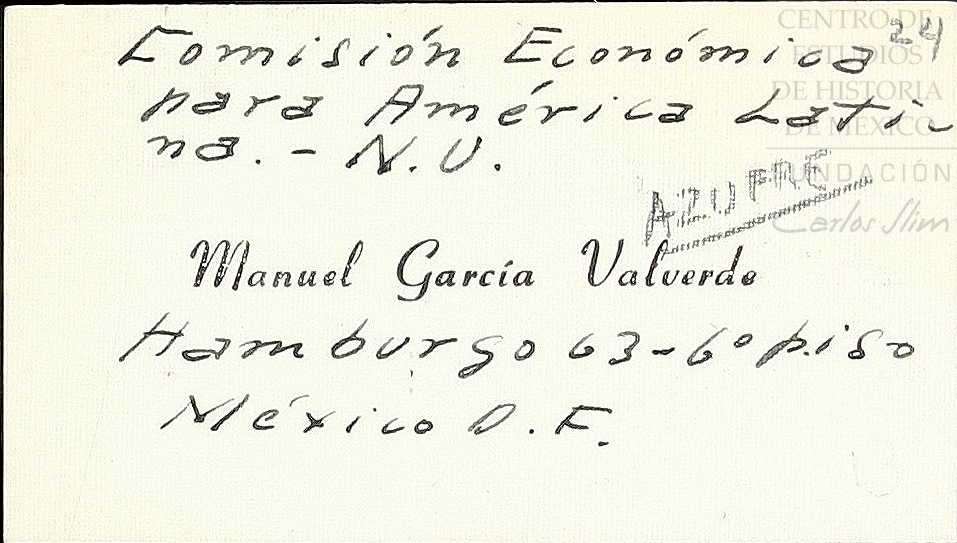 CENTRO DE
ESTUDIOS
DE HISTORIA
DE MÉXICO
FUNDACIÓN
Carlos Slim
24
Comisión Económica
para América Lati-
na. - N.U.
AZUFRE
Manuel García Valverde
Hamburgo 63-6º piso
México D.F.